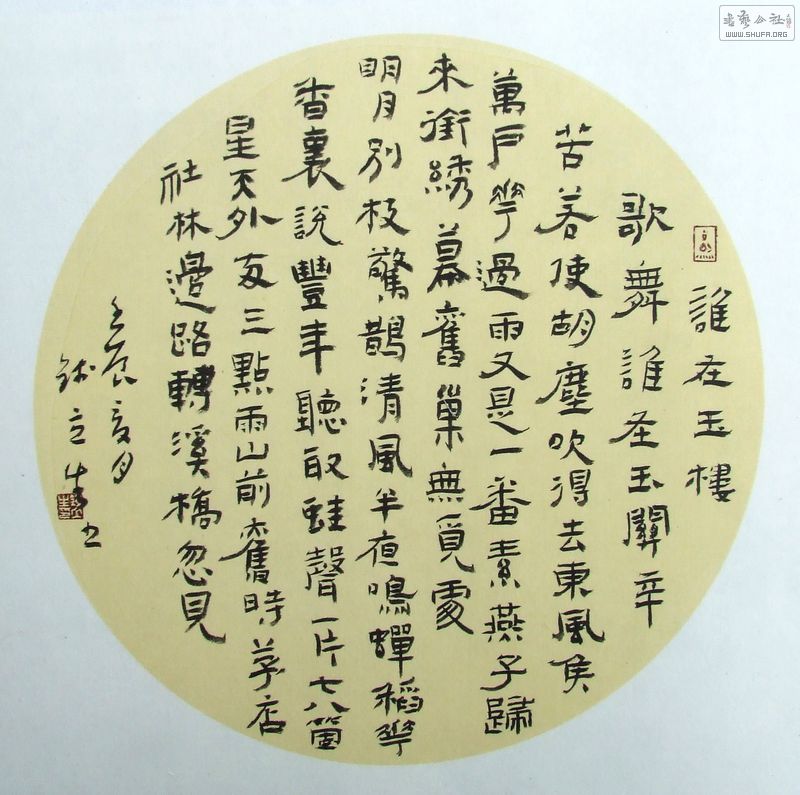 誰在玉樓
歌舞誰在玉關辛
苦若使胡塵吹得去東風侯
萬戶華過雨又是一番素燕子歸
來銜綉幕舊巢無覓處
明月別枝驚鵲清風半夜鳴蟬稻華
香裏說豐年聽取蛙聲一片七八箇
星天外兩三點雨山前舊時茅店
社林邊路轉溪橋忽見
壬辰夏月
立生书
書藝公社
WWW.SHUFA.ORG